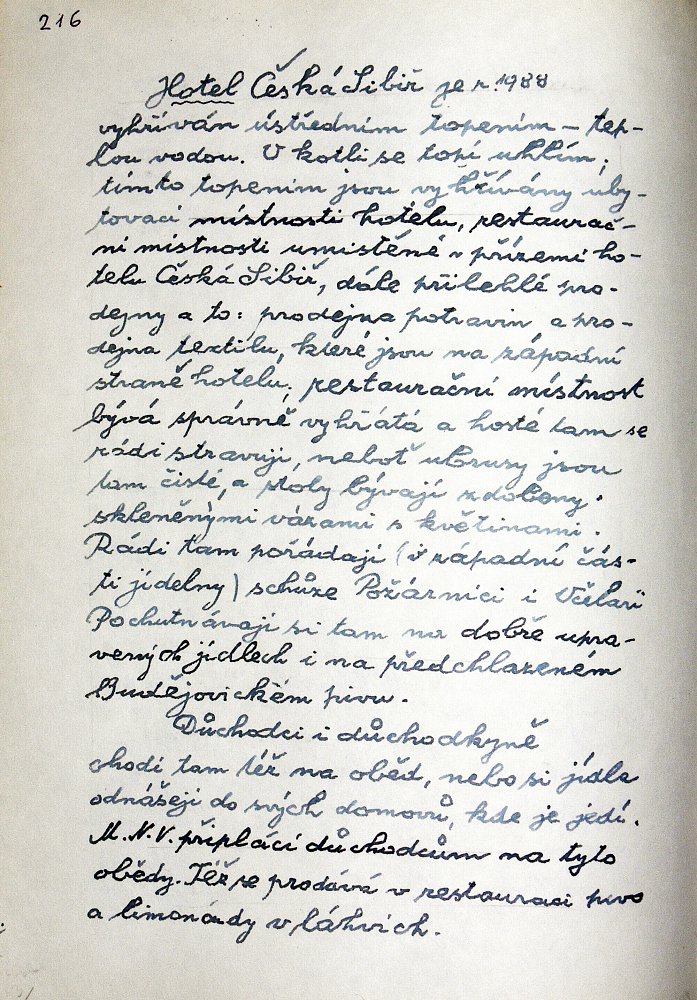 216
Hotel Česká Sibiř je r. 1988
vyhříván ústředním topením – tep-
lou vodou. V kotli se topí uhlím,
tímto topením jsou vyhřívány uby-
tovací místnosti hotelu, restaurač-
ní místnosti umístěné v přízemí ho-
telu Česká Sibiř, dále přilehlé pro-
dejny a to: prodejna potravin a pro-
dejna textilu, které jsou na západní
straně hotelu; restaurační místnost
bývá správně vyhřátá a hosté tam se
rádi stravují, neboť ubrusy jsou
tam čisté, a stoly bývají zdobeny
skleněnými vázami s květinami.
Rádi tam pořádají (v západní čás-
ti jídelny) schůze Požárníci i Včelaři
Pochutnávají si tam na dobře upra-
vených jídlech i na předchlazeném
Budějovickém pivu.
Důchodci i důchodkyně
chodí tam též na oběd, nebo si jídla
odnášejí do svých domovů, kde je jedí.
M.N.V. připlácí důchodcům na tyto
obědy. Též se prodává v restauraci pivo
a limonády v láhvích.